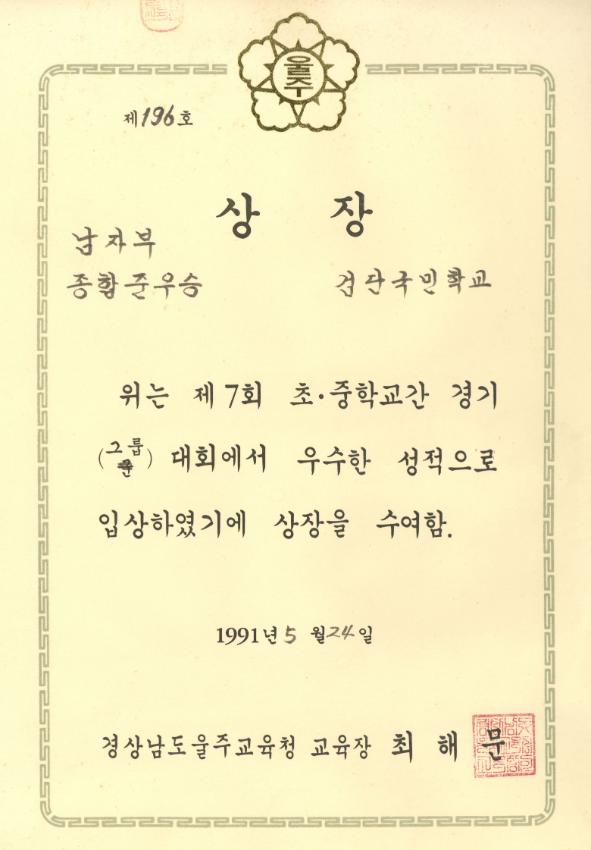 울주
제196호
상 장
남자부
종합준우승 검단국민학교
위는 제7회 초·중학교간 경기
(그룹) 대회에서 우수한 성적으로
입상하였기에 상장을 수여함.
1991년 5월 24일
경상남도울주교육청 교육장 최해문